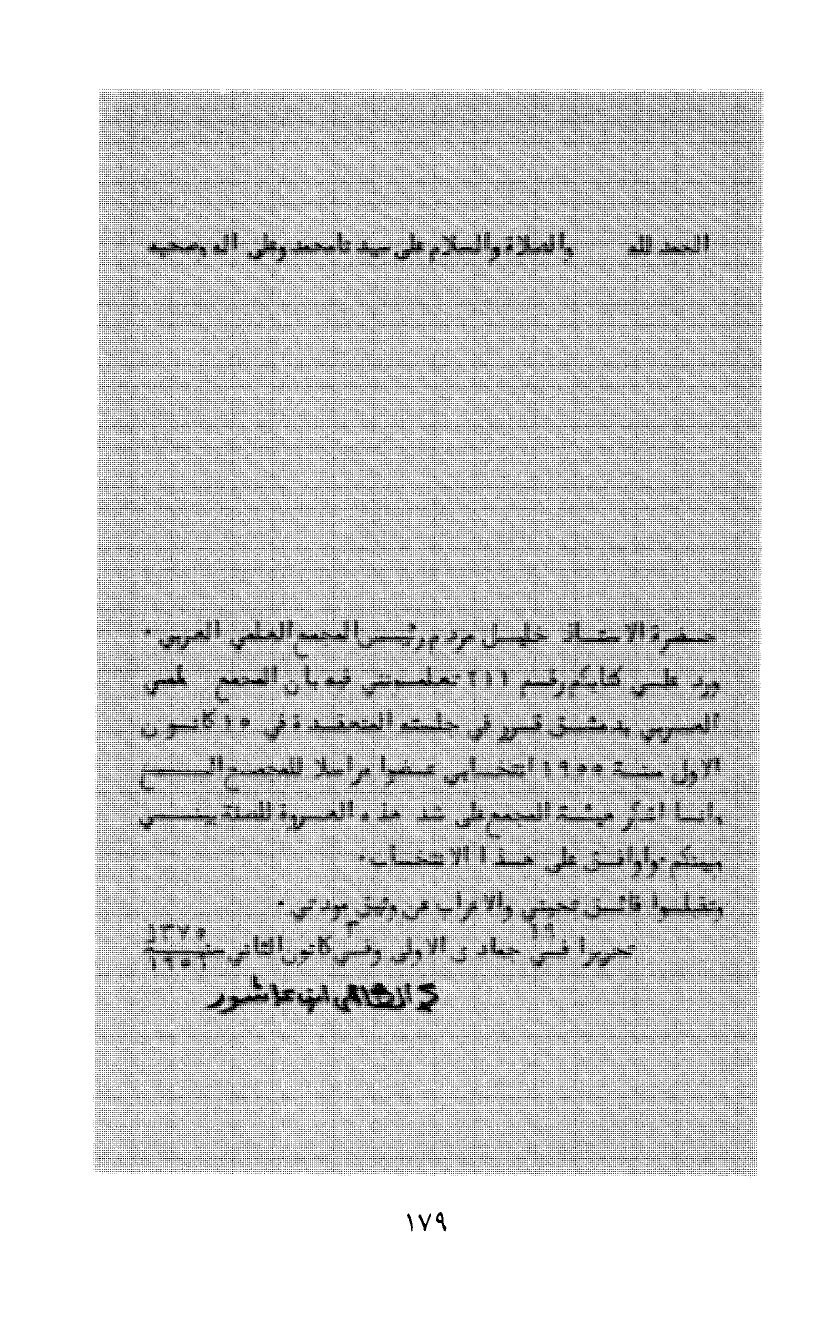 الحمد لله والصلاة والسلام على سيدنا محمد وعلى اله وصحبه
حضرة الاستاذ خليل مردم رئيس المجمع العلمي العربي ٠
ورد علي كتابكم رقم تعلمونني فيه بان المجمع
العربي بدمشق قرر في جلسته المنعقدة في ١٥ كانون
الاول سنة ١٩٥٥ انتخابي عضوا مراسلا للمجمع
وانما اشكر هيئة المجمع على شد هذه العروة للصلة بيني
وبينكم واوافق على هذا الانتخاب٠
وتقبلوا فائق تحيتي والاعراب عن وثيق مودتي ٠
تحريرا في جمادى الاولى وفي كانون الثاني سنة ١٣٧٥
الطاهر ابن عاشور
١٧٩